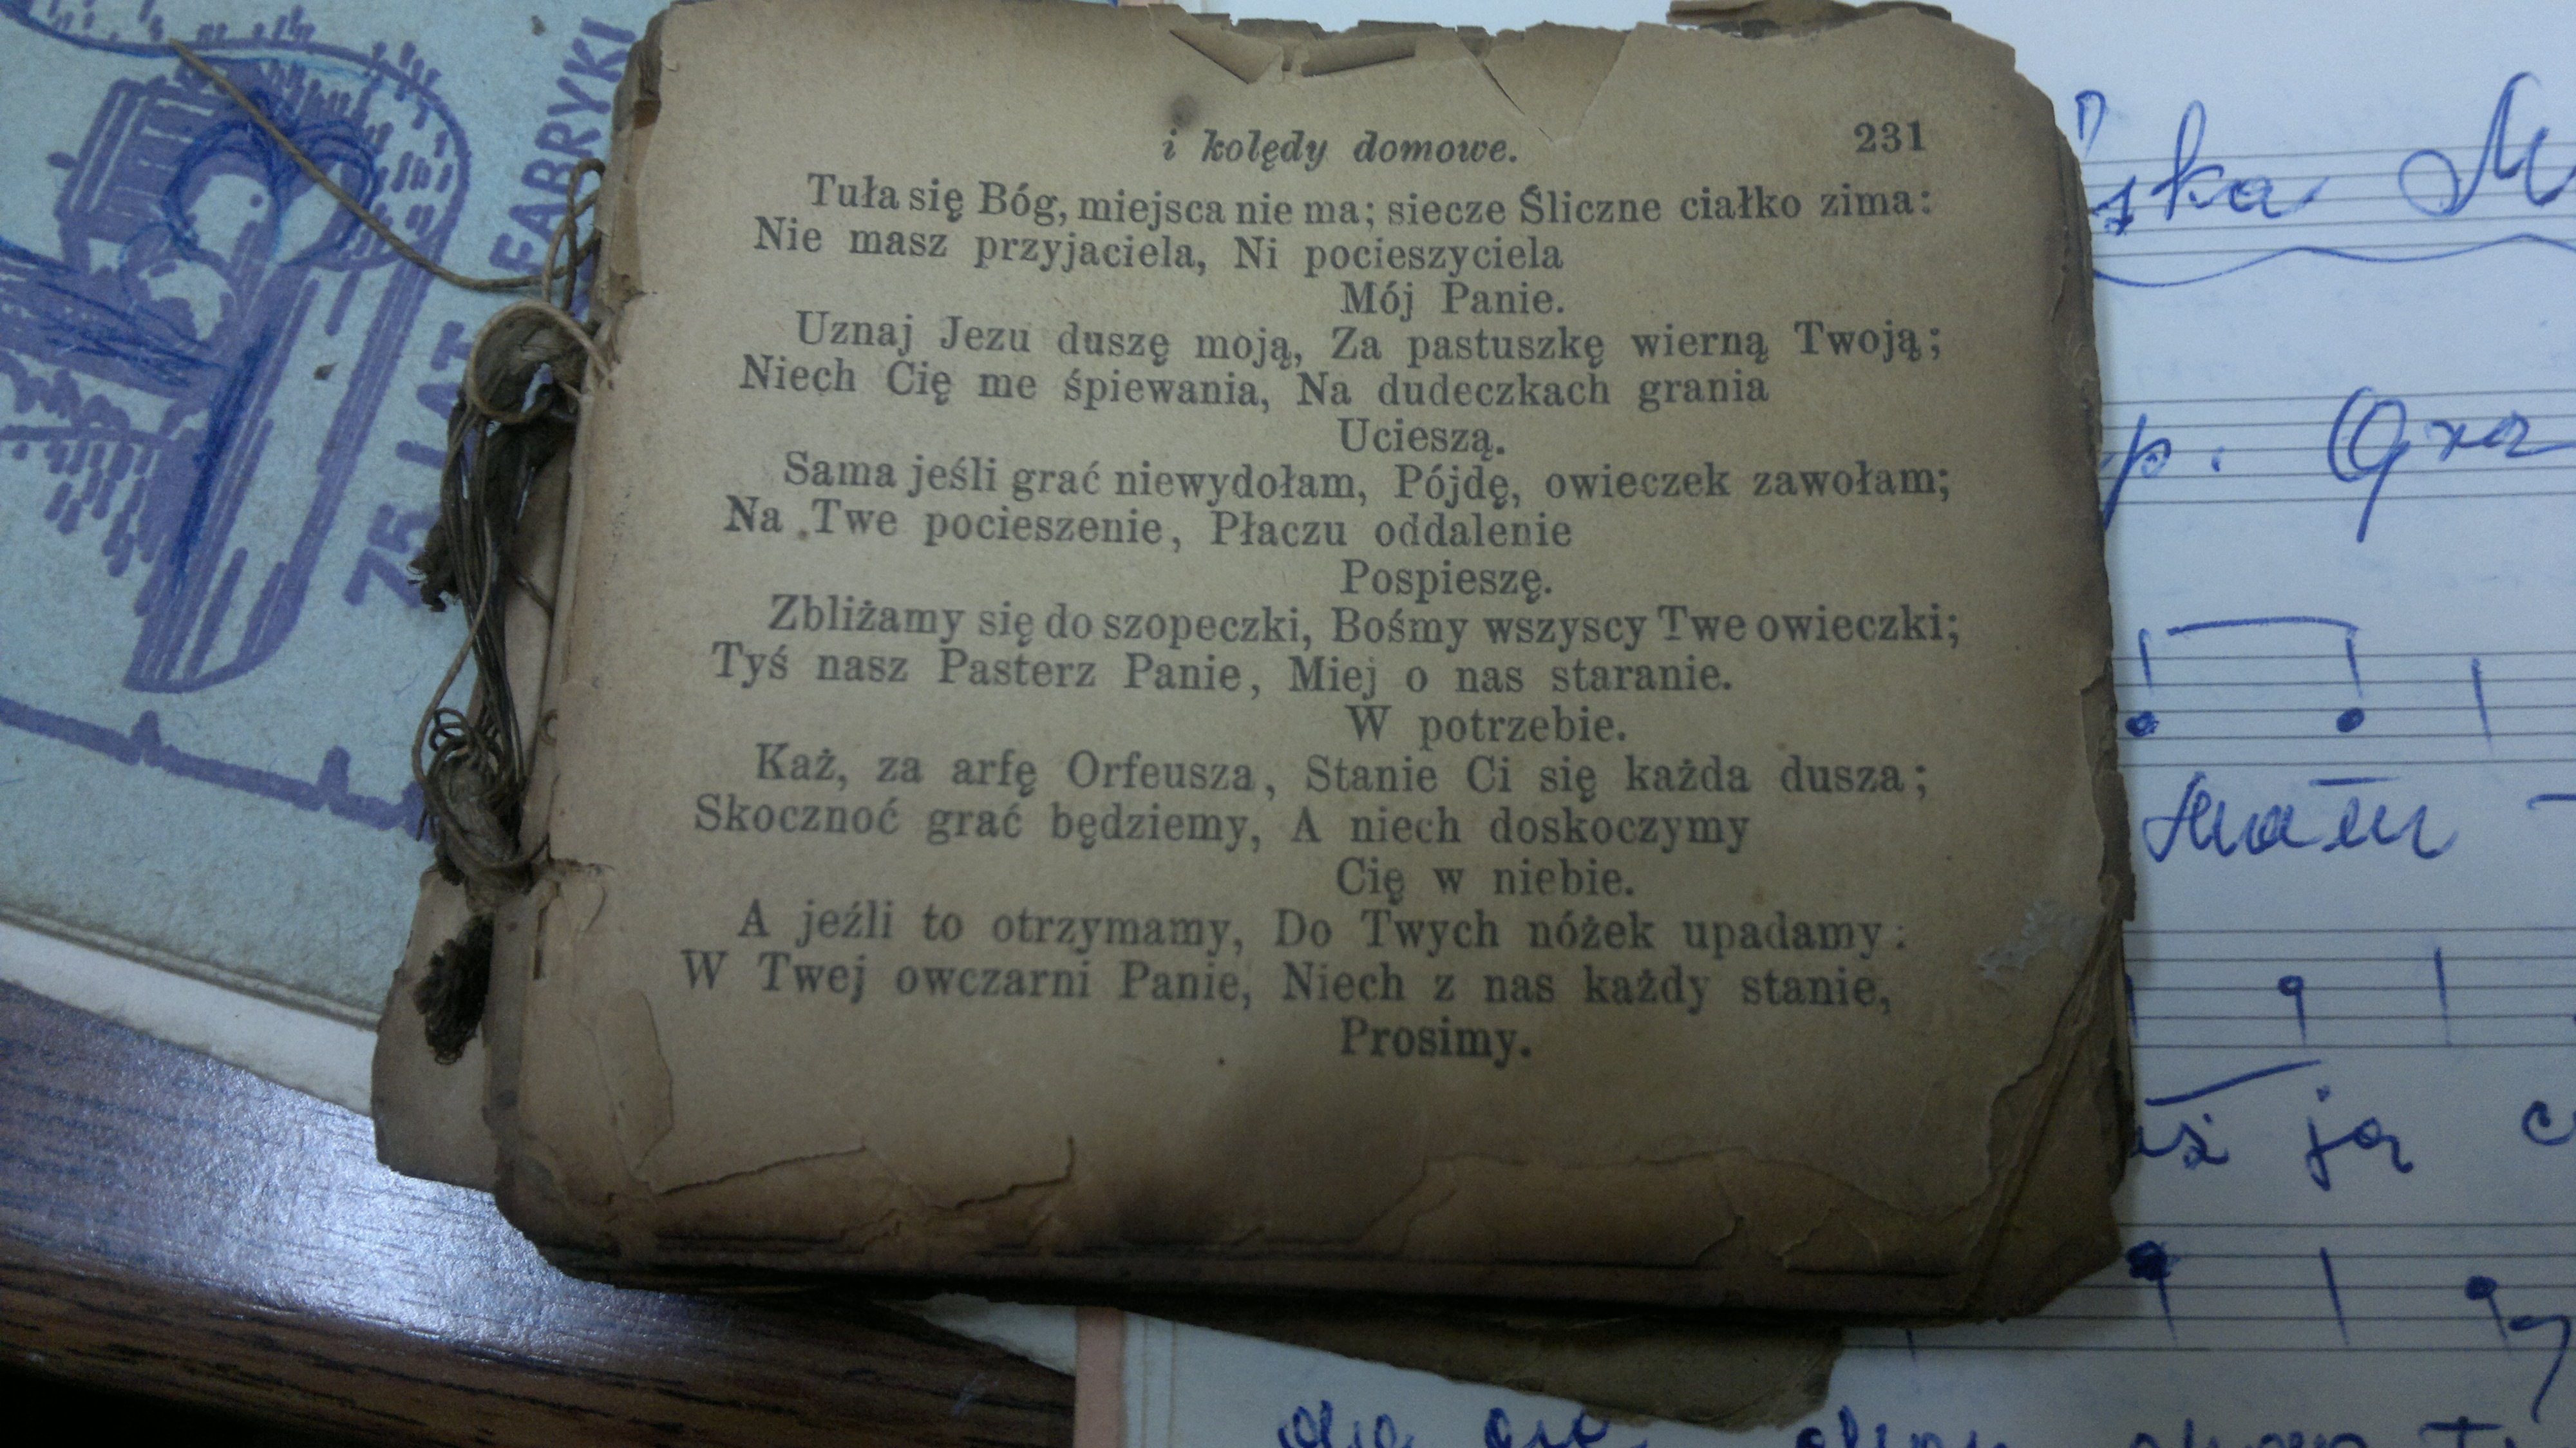 75 LAT FABRYKI
i kolędy domowe. 231
Tuła się Bóg, miejsca nie ma; siecze Śliczne ciałko zima:
Nie masz przyjaciela, Ni pocieszyciela
Mój Panie.
Uznaj Jezu duszę moją, Za pastuszkę wierną Twoją;
Niech Cię me śpiewania, Na dudeczkach grania
Ucieszą.
Sama jeśli grać niewydołam, Pójdę, owieczek zawołam;
Na Twe pocieszenie, Płaczu oddalenie
Pospieszę.
Zbliżamy się do szopeczki, Bośmy wszyscy Twe owieczki;
Tyś nasz Pasterz Panie, Miej o nas staranie.
W potrzebie.
Każ, za arfę Orfeusza, Stanie Ci się każda dusza;
Skocznoć grać będziemy, A niech doskoczymy
Cię w niebie.
A jeźli to otrzymamy, Do Twych nóżek upadamy:
W Twej owczarni Panie, Niech z nas każdy stanie,
Prosimy.
ska M
p.
ją